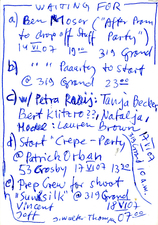 WAITING FOR
a) Ben Moser ("After Prom
to drop off Staff Party")
14 VI 07 19 00 319 Grand
b) " " Paarty to start
@ 319 Grand 23 00
c) w/ Petra : Tanja Becker,
Bert Klitero ??, Natalja,
Model: Lauren Brown
d) Start "Crepe-Party"
@ Patrick Orban
53 Crosby 17 VI 07 13 30
e) Prep Crew for shoot
"Sunsilk" @ 319 Grand
Vincent 18 VI 07
Joff Thomas 07 00
17 VI 07
10 am